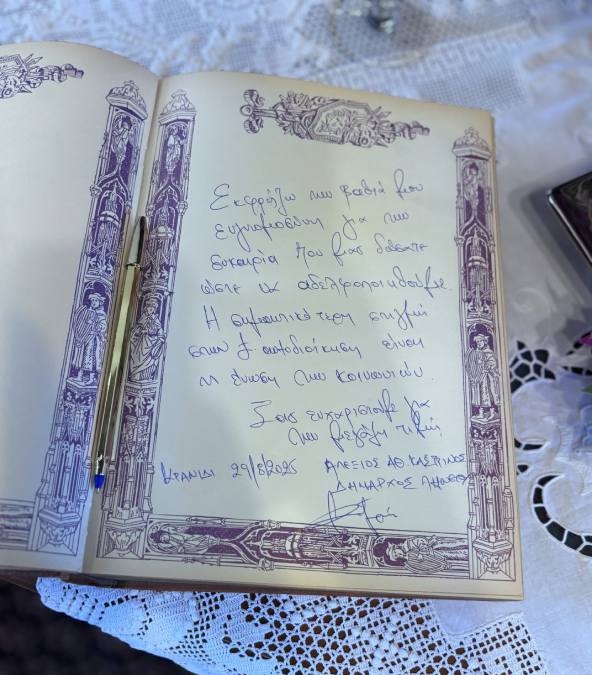 Εκφράζω την βαθιά μου
ευγνωμοσύνη για την
ευκαιρία που μας δώσατε
ώστε να αδελφοποιηθούμε.
Η σημαντικότερη στιγμή
στην αυτοδιοίκηση είναι
η ένωση των κοινωνιών.
Σας ευχαριστούμε για
την μεγάλη τιμή.
ΚΡΑΝΙΔΙ 29/8/2025 ΑΛΕΞΙΟΣ ΑΘ. ΚΑΣΤΡΙΝΟΣ
ΔΗΜΑΡΧΟΣ